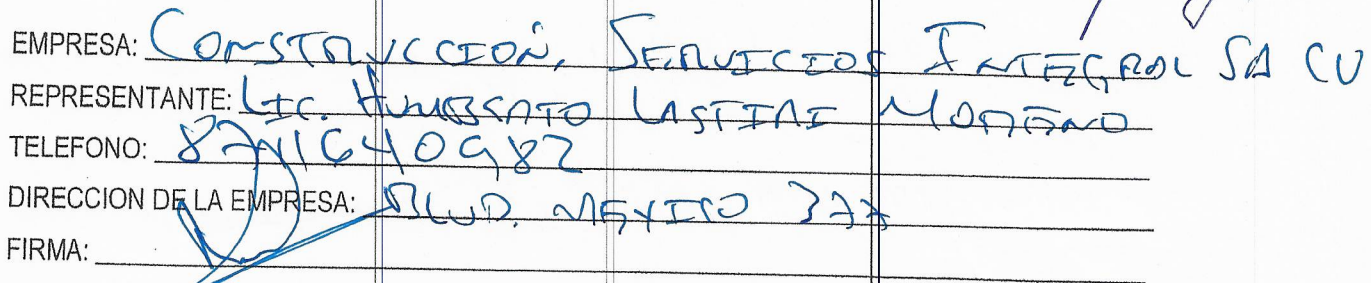 EMPRESA: CONSTRUCCION, SERVICIOS INTEGRAL SA CV
REPRESENTANTE: LIC. HUMBERTO MORENO
TELEFONO: 8741640982
DIRECCION DE LA EMPRESA: BLVD. MEXICO 377
FIRMA: